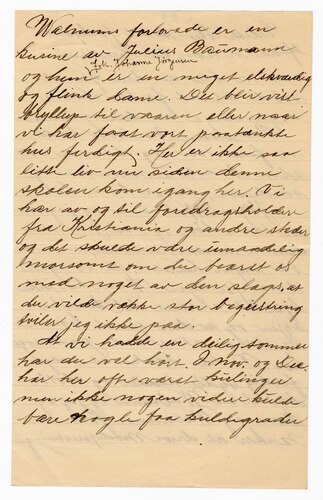 Walnums forlovede er en
kusine av Julius Baumann
Frk. Johanne Jörgensen
og hun er en meget elskværdig
og flink dame. Det blir vist
Bryllup til vaaren eller naar
vi har faat vort paatænkte
hus ferdigt. Her er ikke saa
litte liv nu siden denne
skolen kom igang her. Vi
har av og til foredragsholdere
fra Kristiania og andre steder
og det skulde være umaadelig
morsomt om du beæret os
med noget av den slags, at
du vilde vække stor begeistring
tviler jeg ikke paa.
At vi hadde en deilig sommer
har du vel hørt. I nov. og Dec.
har her ofte været kulinger
men ikke nogen videre kulde
bare nogle faa kuldegrader